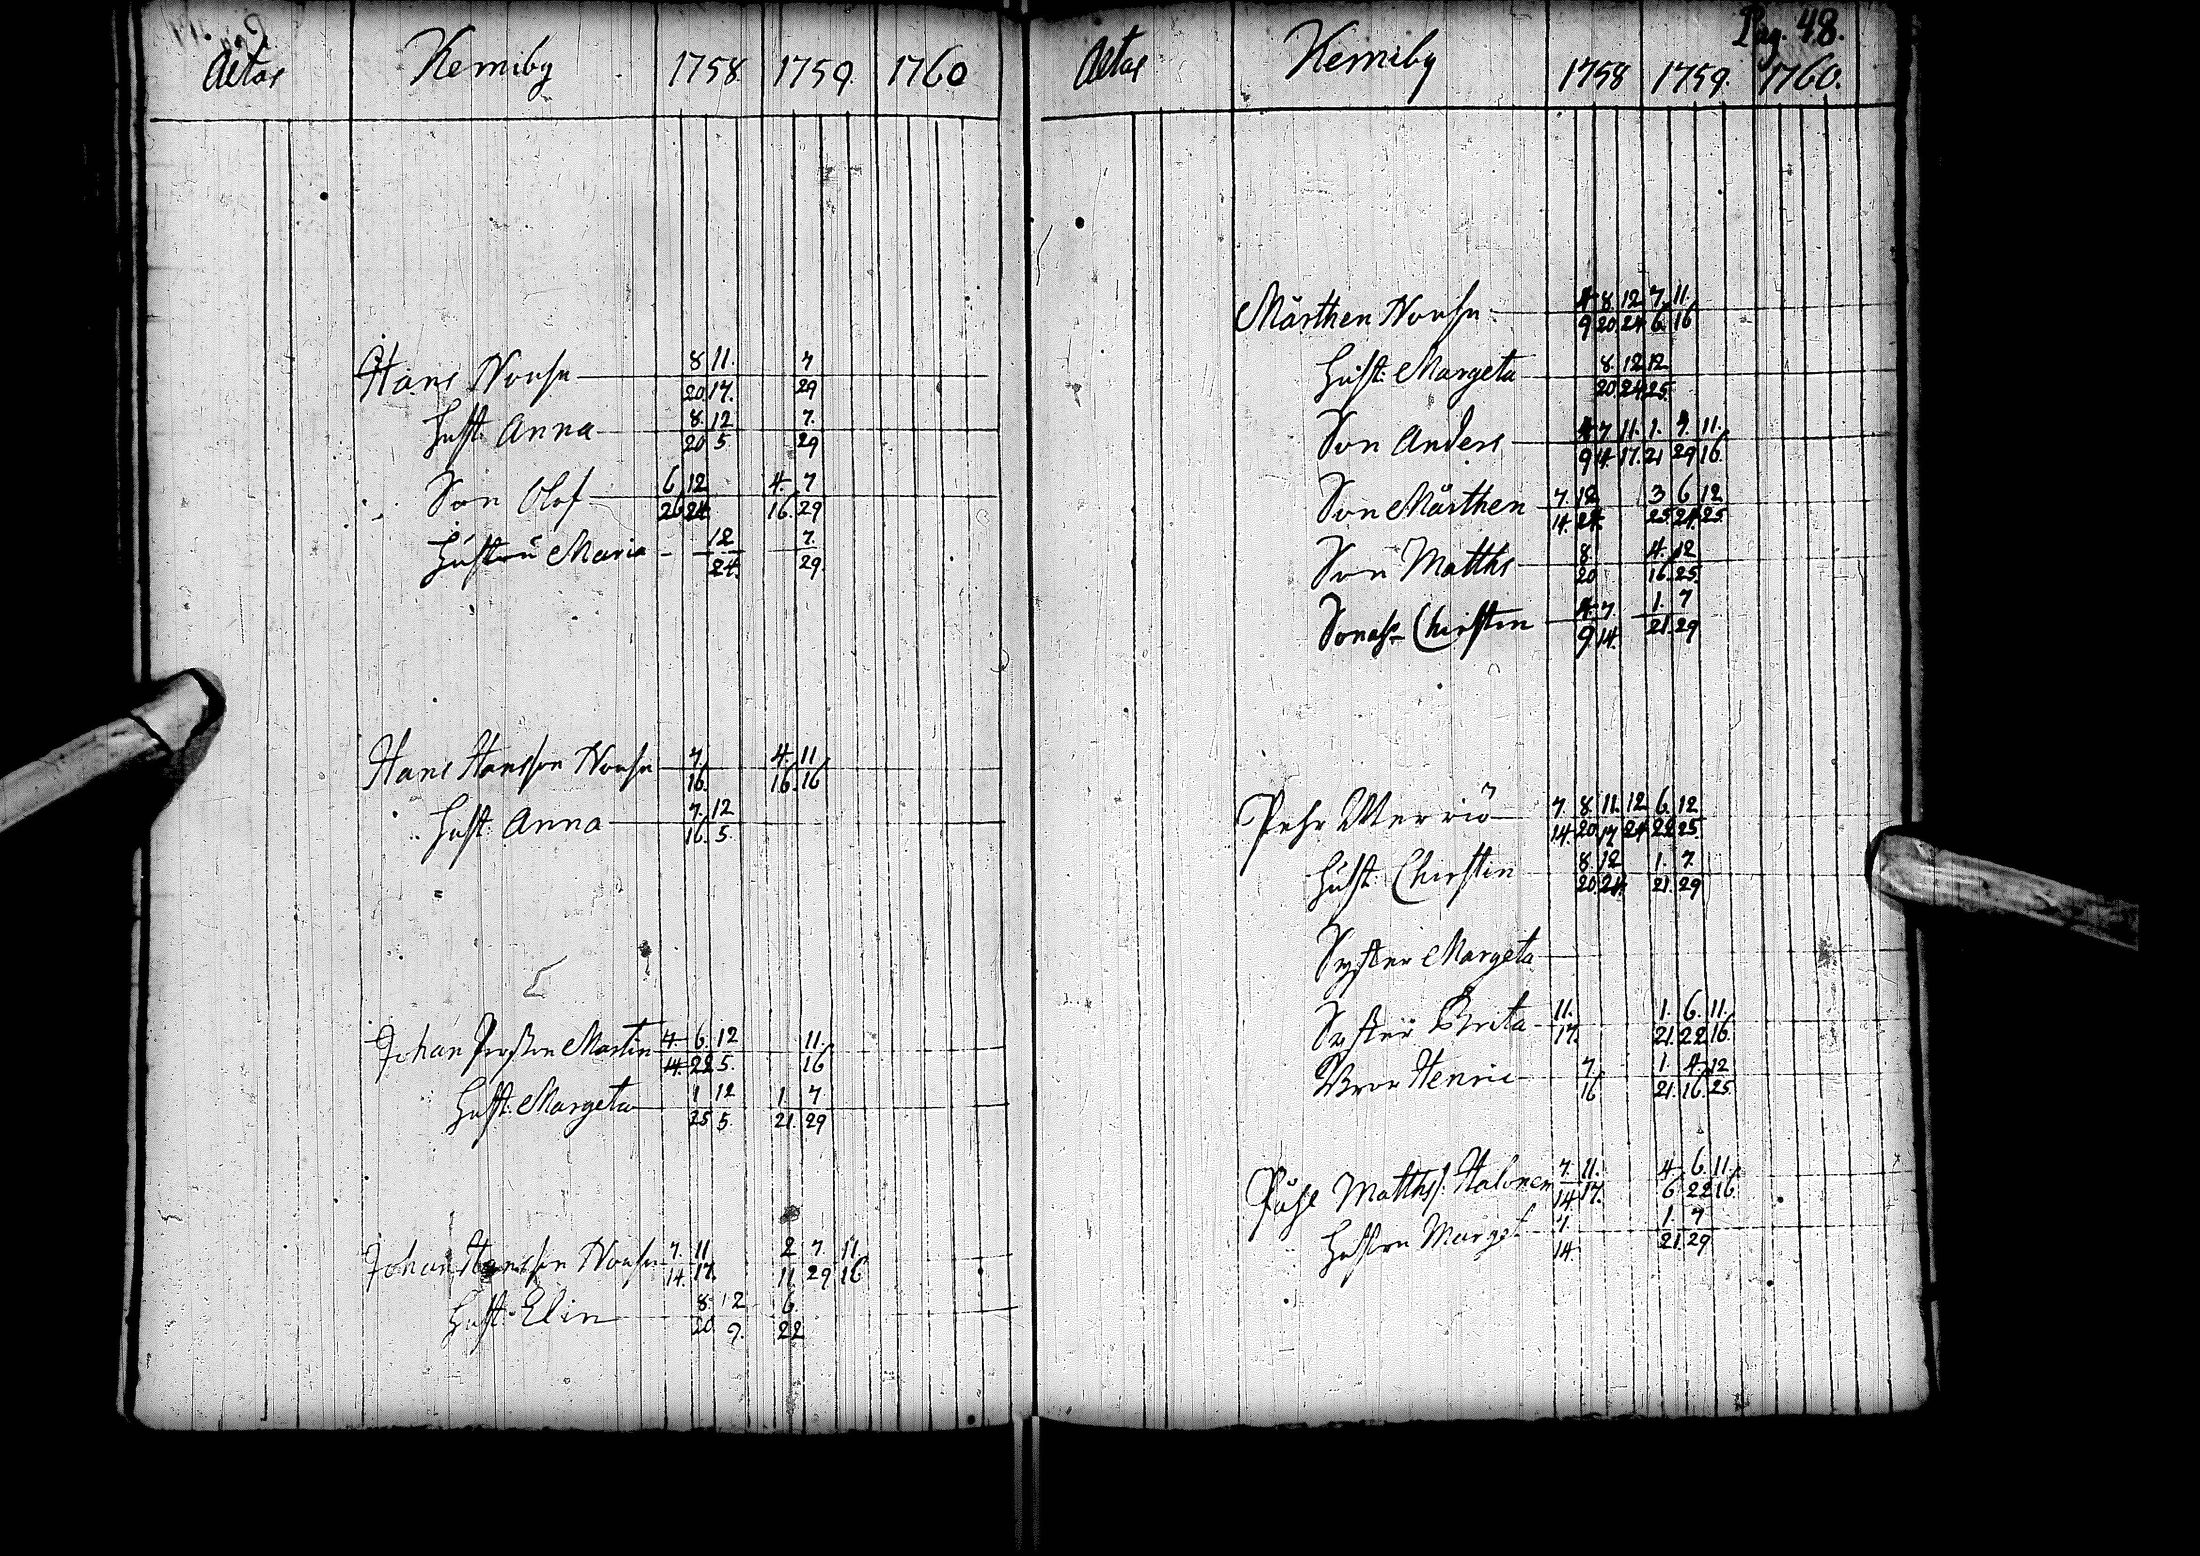 Aetas Kemiby 1758 1759. 1760
8 11. 7
Hans Nousu
20. 17. 29
8. 12 7.
Hust: Anna
20 5 29
6 12 4. 7
Son Olof
26 24. 16. 29
12 7.
Hustru Maria
24. 29.
7. 4. 11
Hans Hansson Nousu
16. 16. 16
7. 12
Hust: Anna
16. 5.
4. 6. 12 11.
Johan Martin
14. 22 5. 16
1 12 1. 7
Hust: Margeta
25 5. 21. 29
7. 11 2 7. 11
Johan Hansson Nousu
14. 17. 11 29 16
8. 12 6.
Hust: Elin
20 9. 22
Pag. 48.
Aetas Kemiby 1758 1759. 1760.
4 8. 12 7. 11.
Mårthen Nousu
9 20 24 6 16
8. 12 12
Hust: Margeta
20. 24. 25.
4 7 11. 1. 7. 11.
Son Anders
9 14. 17. 21 29 16.
7. 12 3 6 12
Son Mårthen
14. 24. 25. 24. 25.
8. 4. 12
Son Matths
20 16. 25.
4. 7. 1. 7
Sonahr Chirstin
9. 14. 21. 29
7. 8. 11. 12 6. 12
Pehr Werriö
14. 20. 17 24 22 25.
8. 12 1. 7.
Hust: Chirstin
20. 24. 21. 29
Syster Margeta
11. 1. 6. 11.
Syster Brita
17. 21. 22 16.
7. 1. 4. 12
Bror Henric
16 21. 16. 25.
7. 11. 4. 6. 11.
Påhl Matths: Halonen
14. 17. 6 22 16.
7. 1. 7
Hustru Marget
14. 21. 29